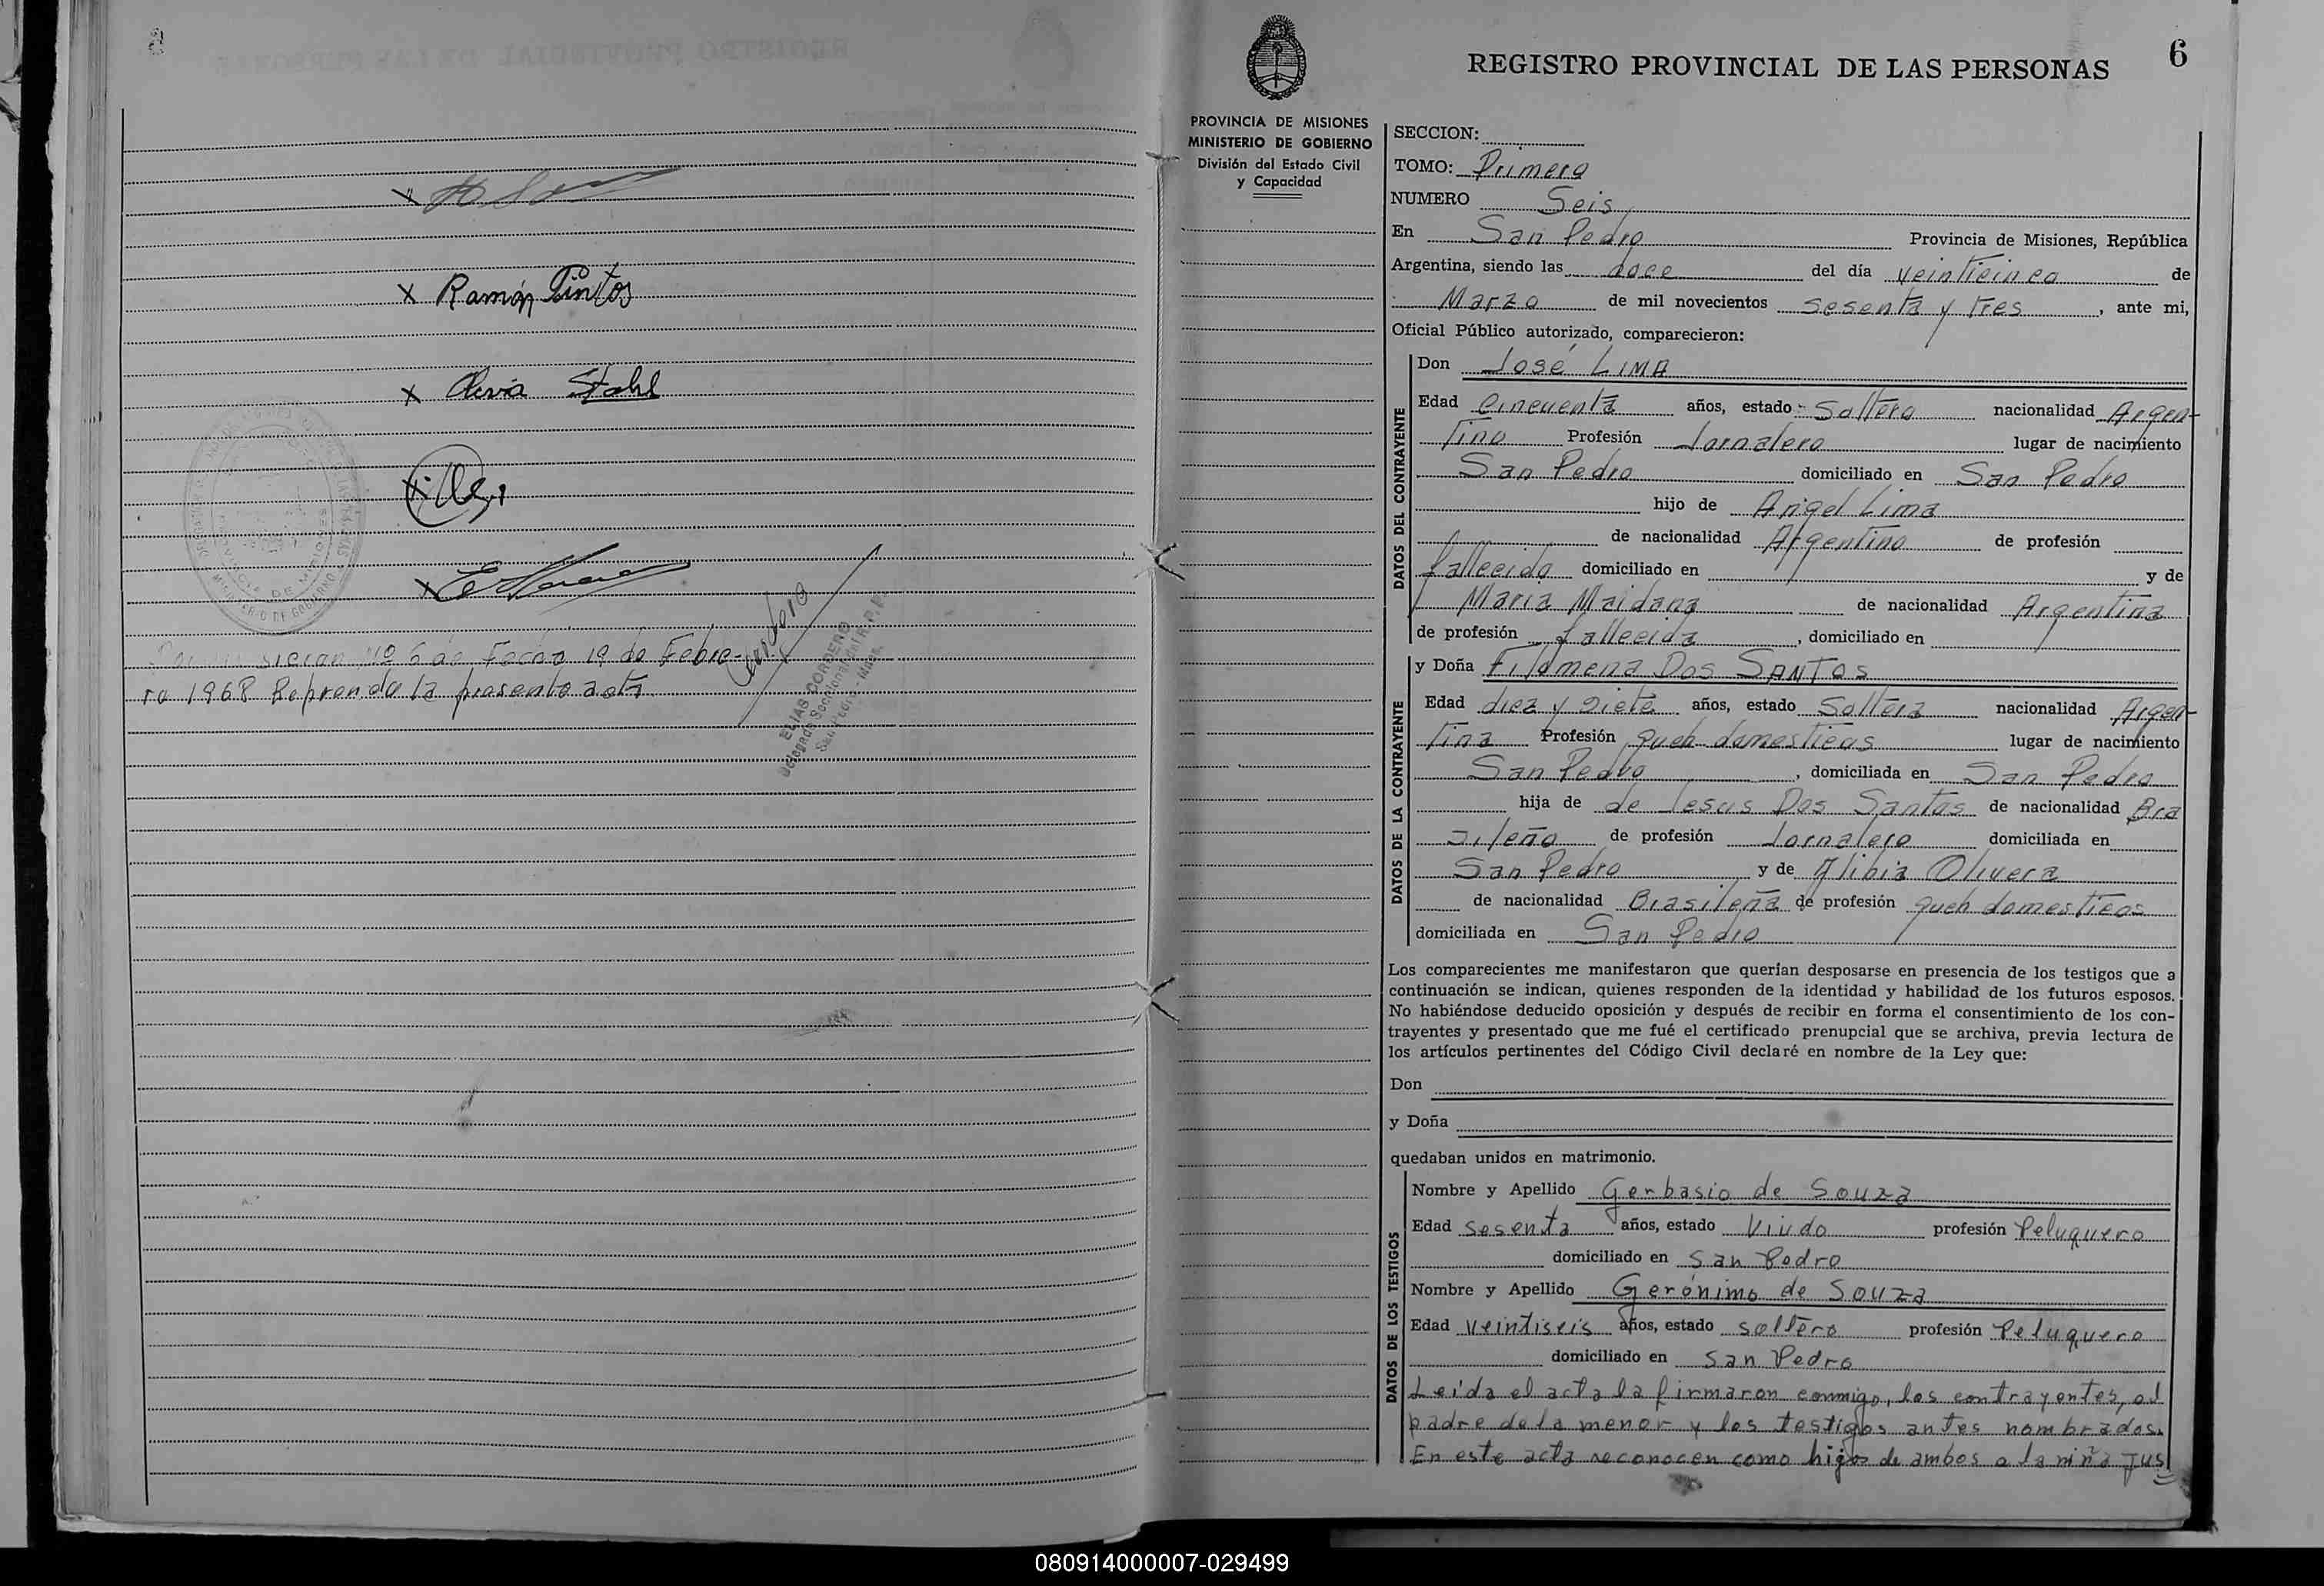 Ramón Pintos
Stahl
sieron Nº 6 de Fecha 19 de Febre-
ro 1968 la presente acta
ELIAS CORDERO
REGISTRO PROVINCIAL DE LAS PERSONAS
6
PROVINCIA DE MISIONES
MINISTERIO DE GOBIERNO
División del Estado Civil
y Capacidad
SECCION:
TOMO: Primero
NUMERO Seis
En San Pedro Provincia de Misiones, República
Argentina, siendo las doce del día veinticinco de
Marzo de mil novecientos sesenta y tres, ante mi,
Oficial Público autorizado, comparecieron:
DATOS DEL CONTRAYENTE
Don José LIMA
Edad Cincuenta años, estado Soltero nacionalidad Argen-
tino Profesión Jornalero lugar de nacimiento
San Pedro domiciliado en San Pedro
hijo de Angel Lima
de nacionalidad Argentino de profesión
fallecido domiciliado en y de
Maria Maidana de nacionalidad Argentina
de profesión fallecida, domiciliado en
DATOS DE LA CONTRAYENTE
y Doña Filomena DOS SANTOS
Edad diez y siete años, estado Soltera nacionalidad Argen-
tina Profesión queh domesticos lugar de nacimiento
San Pedro, domiciliada en San Pedro
hija de de Jesus Dos Santos de nacionalidad Bra
sileño de profesión Jornalero domiciliada en
San Pedro y de Alibia Olivera
de nacionalidad Brasileña de profesión queh domesticos
domiciliada en San Pedro
Los comparecientes me manifestaron que querían desposarse en presencia de los testigos que a
continuación se indican, quienes responden de la identidad y habilidad de los futuros esposos.
No habiéndose deducido oposición y después de recibir en forma el consentimiento de los con-
trayentes y presentado que me fué el certificado prenupcial que se archiva, previa lectura de
los artículos pertinentes del Código Civil declaré en nombre de la Ley que:
Don
y Doña
quedaban unidos en matrimonio.
DATOS DE LOS TESTIGOS
Nombre y Apellido Gerbasio de Souza
Edad sesenta años, estado Viudo profesión Peluquero
domiciliado en San Pedro
Nombre y Apellido Gerónimo de Souza
Edad veintiseis años, estado soltero profesión Peluquero
domiciliado en San Pedro
Leída el acta la firmaron conmigo, los contrayentes, el
padre de la menor y los testigos antes nombrados.
En este acta reconocen como hijos de ambos a la niña Jus
080914000007-029499